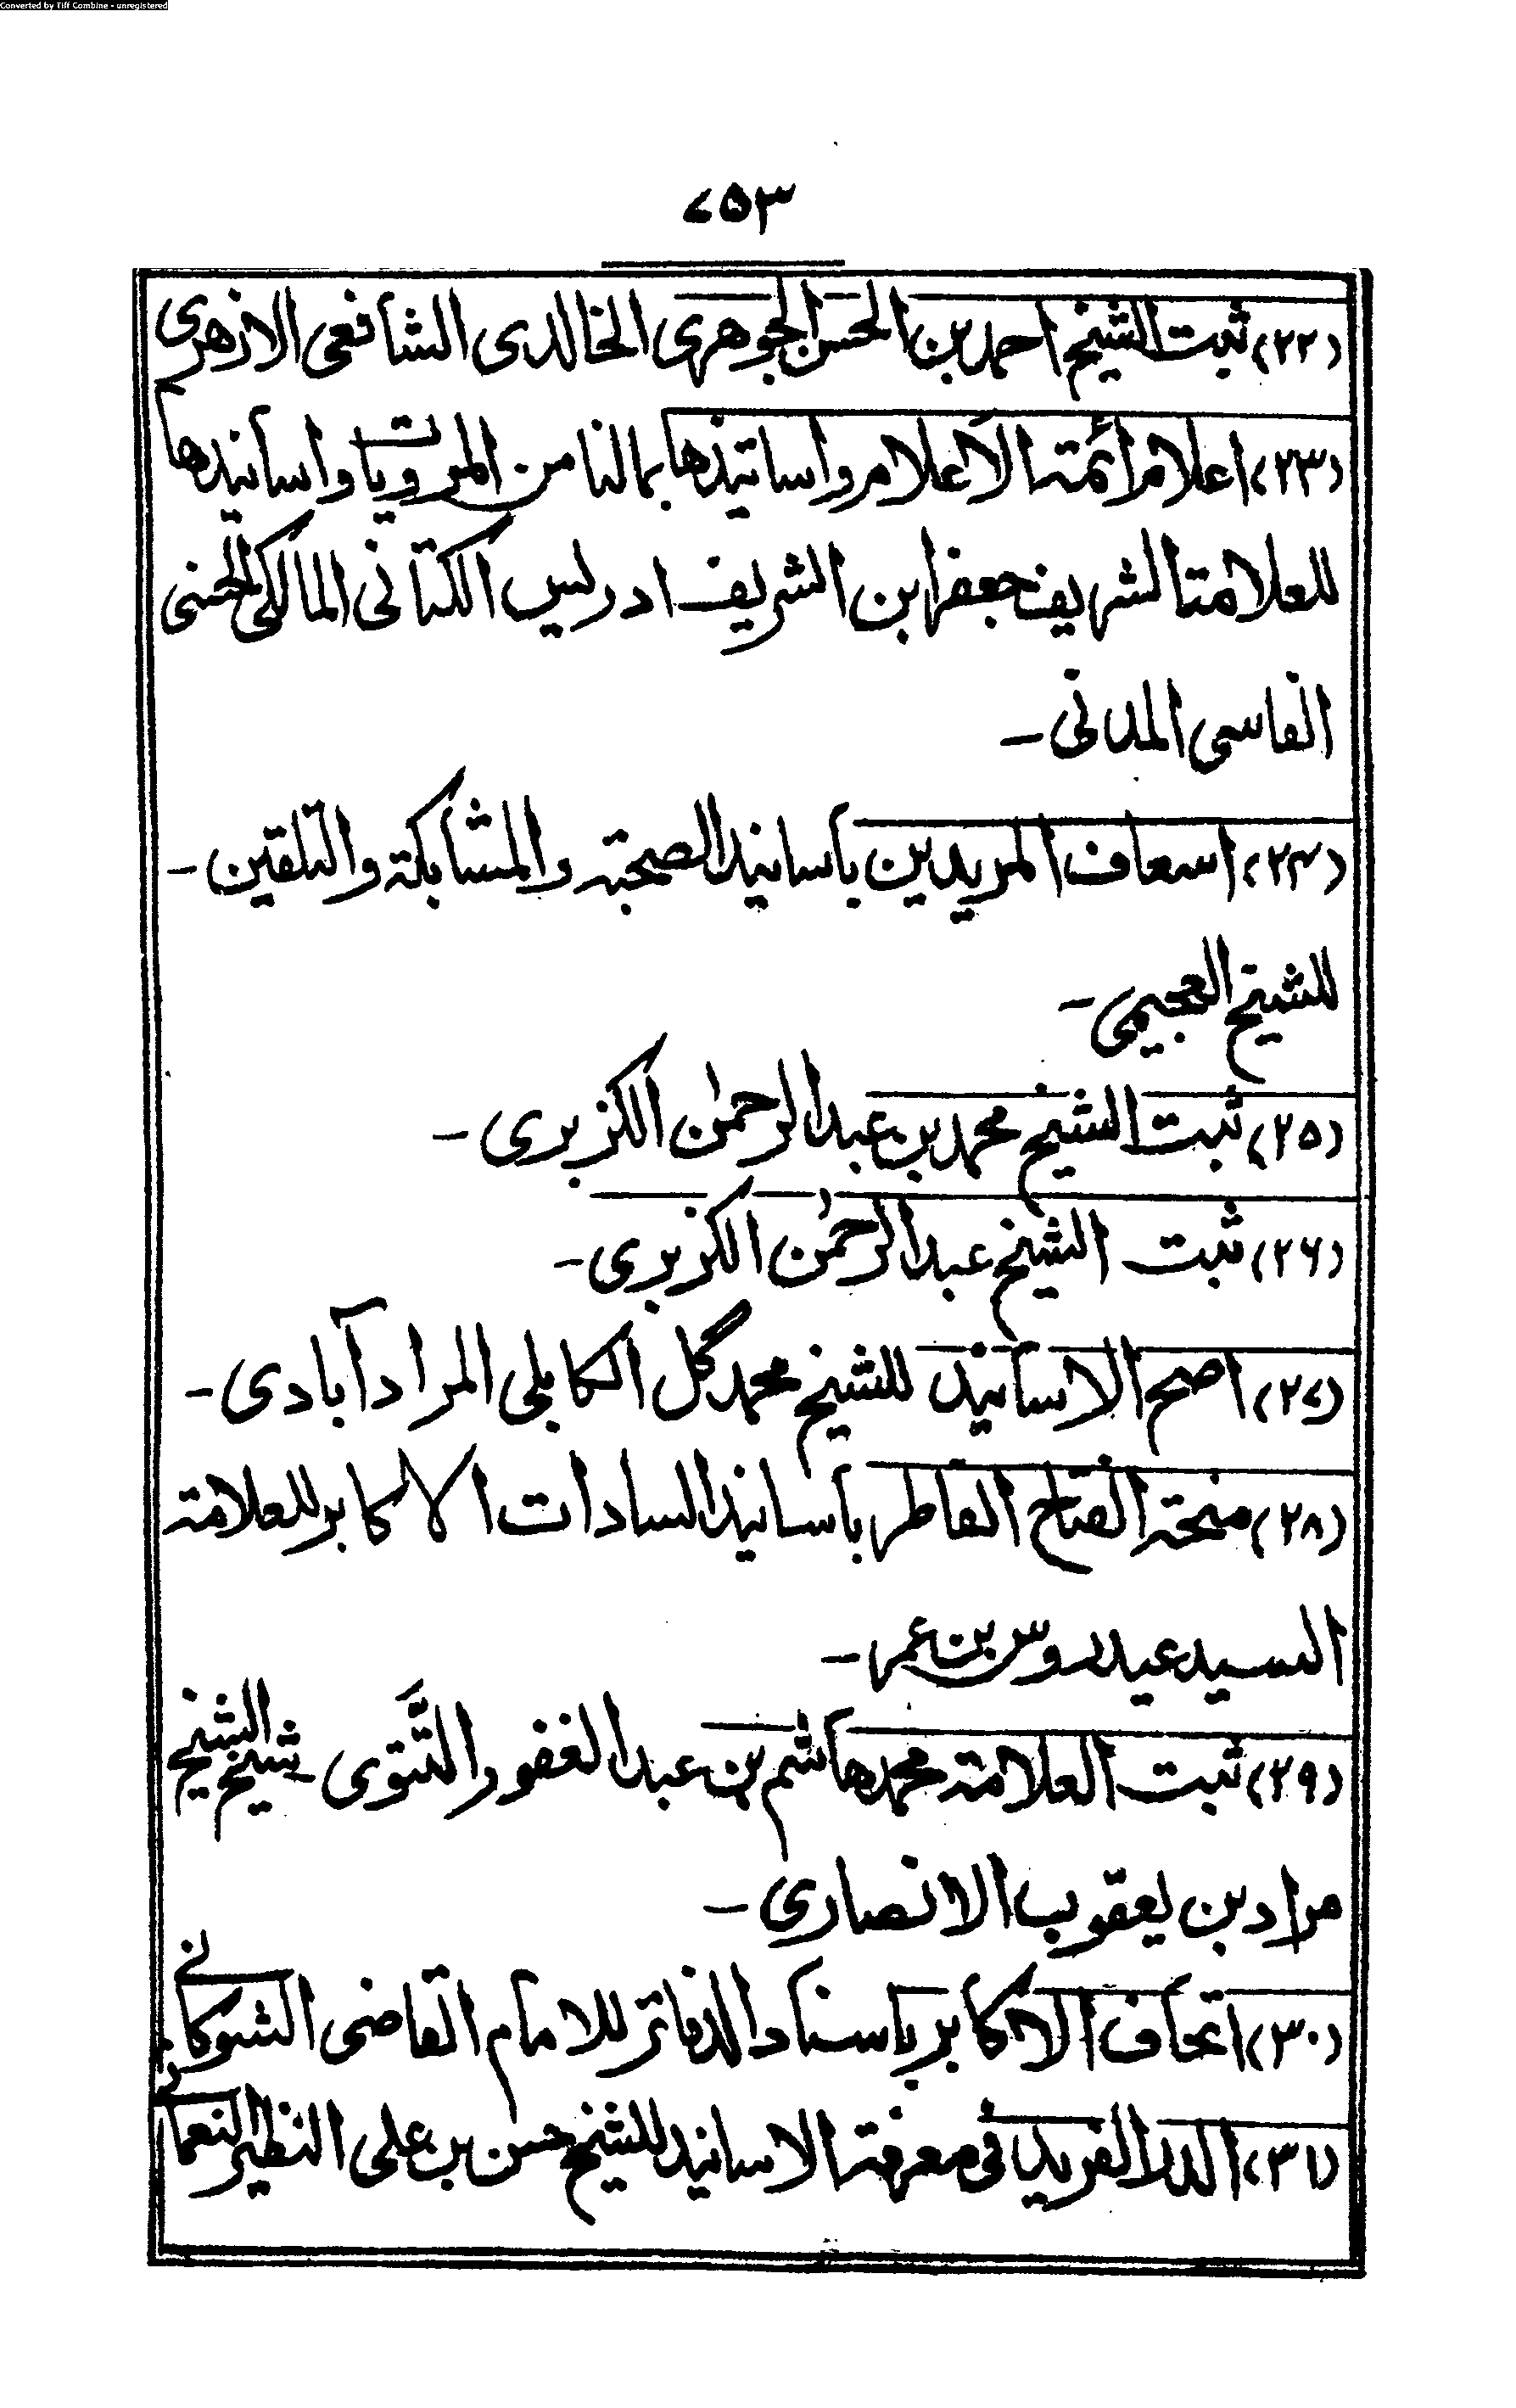 Converted by Tiff Combine - unregistered
۷۵۳
(۲۲) ثبت الشیخ احمد بن الحسن الجوهری الخالدی الشافعی الازهری
(۲۳) اعلام ائمتہ الاَعلام واساتیذها بمالنا من المرویات واسانیدها
للعلامتا الشریف جعفر ابن الشریف ادریس الکتانی المالکی الحسنی
الفاسی المدنی ـ
(۲۴) اسعاف المریدین بأسانید الصحبتہ والمشابکة والتلقین ـ
للشیخ العجیمی ـ
(۲۵) ثبت الشیخ محمد بن عبد الرحمٰن الکزبری ـ
(۲۶) ثبت الشیخ عبد الرحمٰن الکزبری ـ
(۲۷) اصح الاسانید للشیخ محمد گل الکابلی المراد آبادی ـ
(۲۸) منحتہ الفتاح الفاطر بأسانید السادات الاکابر للعلامتہ
السید عیدروس بن عمر ـ
(۲۹) ثبت العلامتہ محمد هاشم بن عبد الغفور التَّتوی ـ شیخ الشیخ
مراد بن یعقوب الانصاری ـ
(۳۰) اتحاف الاکابر باسناد الدفاتر للامام القاضی الشوکانی
(۳۱) الدر الفرید فی معرفتہ الاسانید للشیخ حسن بن علی النظیر النعمانی